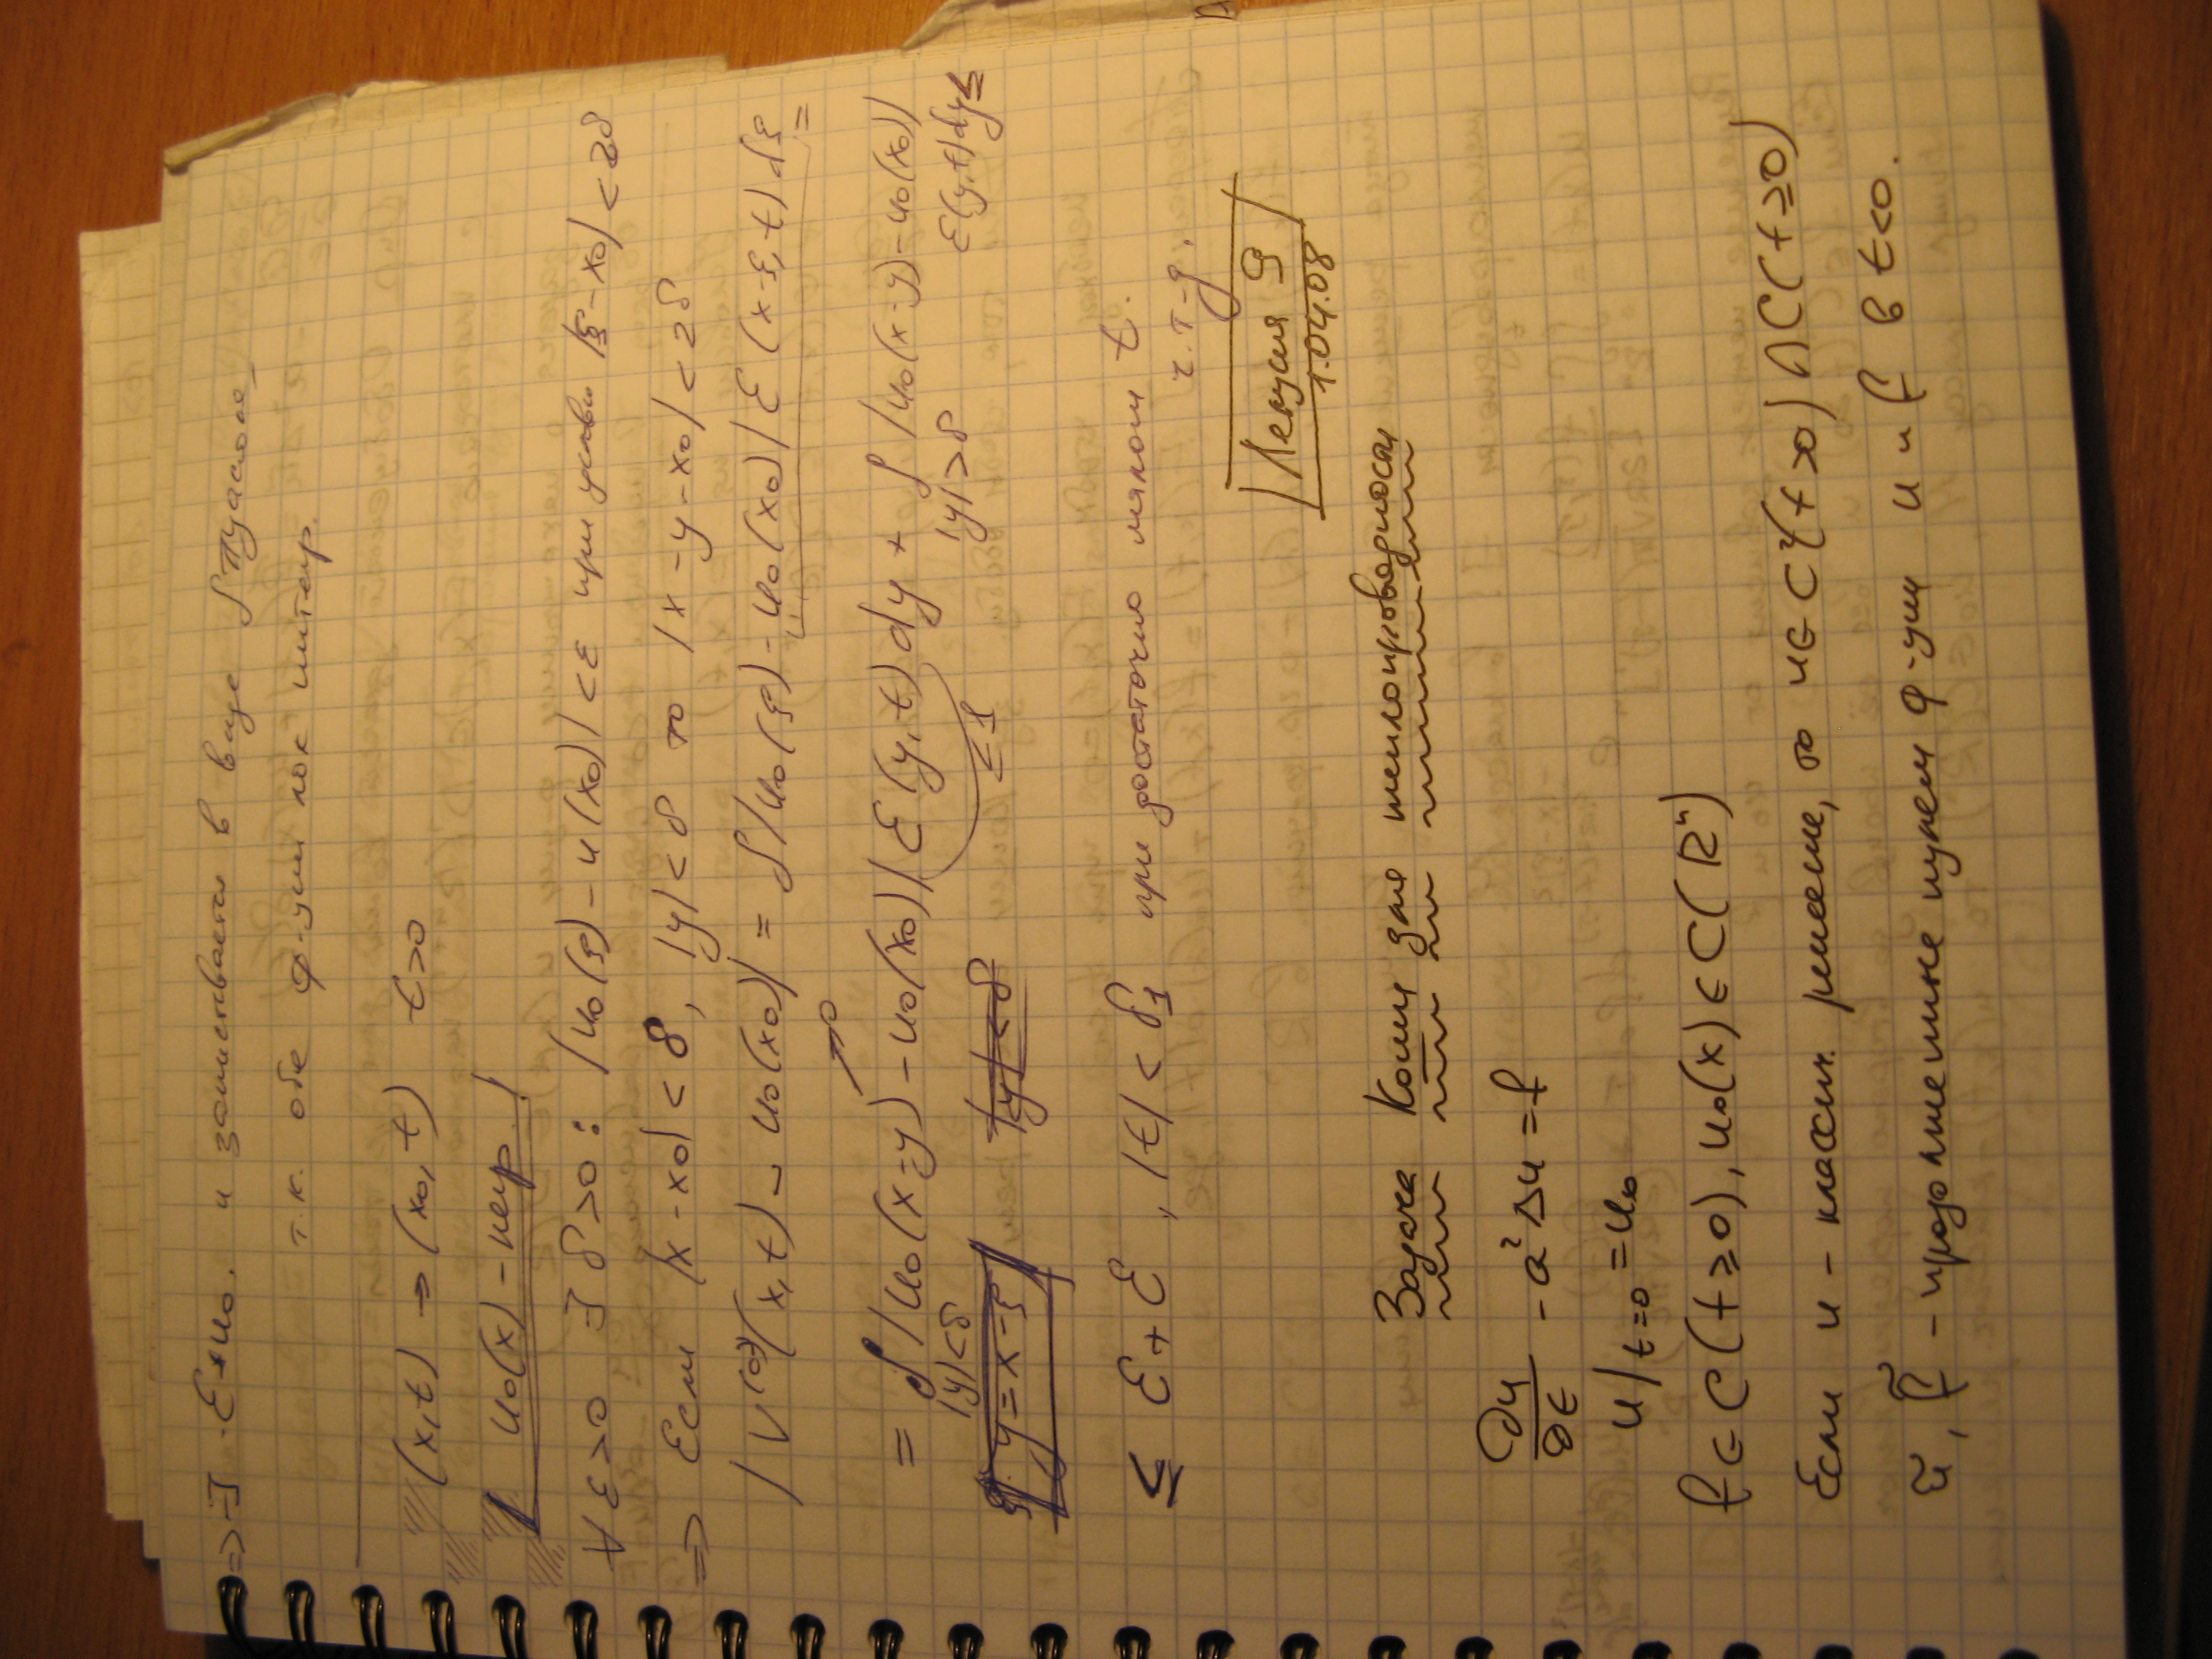 => ∃ ℰ * u₀. и записывается в виде ∫ Пуассона,
т.к. обе ф-ции лок интегр.
(x,t) → (x₀,t) t>0
u₀(x) - непр
∀ ε>0 ∃ δ>0 : |u₀(ξ) - u(x₀)| < ε при услови |ξ-x₀| < 2δ
=> Если |x-x₀| < δ, |y| < δ то |x-y-x₀| < 2δ
|V⁽⁰⁾(x,t) - u₀(x₀)| = ∫|u₀(ξ) - u₀(x₀)| ℰ(x-ξ,t)dξ =
= ∫ |u₀(x-y) - u₀(x₀)| ℰ(y,t)dy + ∫ |u₀(x-y) - u₀(x₀)|
|y|<δ |y|<δ ≤1 |y|>δ ℰ(y,t)dy ≤
y = x-ξ
≤ ℰ + ℰ , |t| < δ₁ при достаточно малом t.
ч.т-д.
Лекция 9
1.04.08
Задача Коши для теплопроводности
∂u/∂t - a²Δu = f
u|t=0 = u₀
f ∈ C(t≥0), u₀(x) ∈ C(Rⁿ)
Если u - классич. решение, то u ∈ C²(t>0) ∩ C(t≥0)
ũ, f̃ - продолжение нулем ф-ции u и f в t<0.